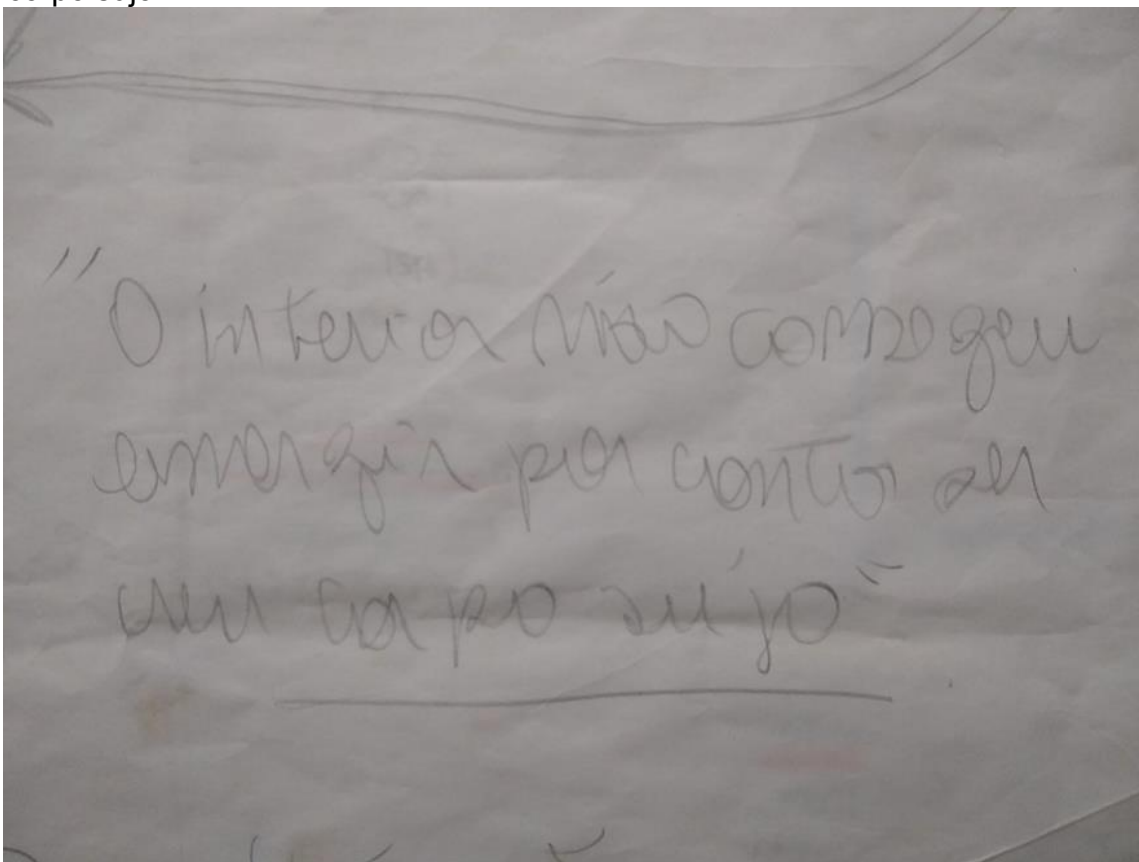 "O interior não consegeu
emergir por conta ser
um corpo sujo"